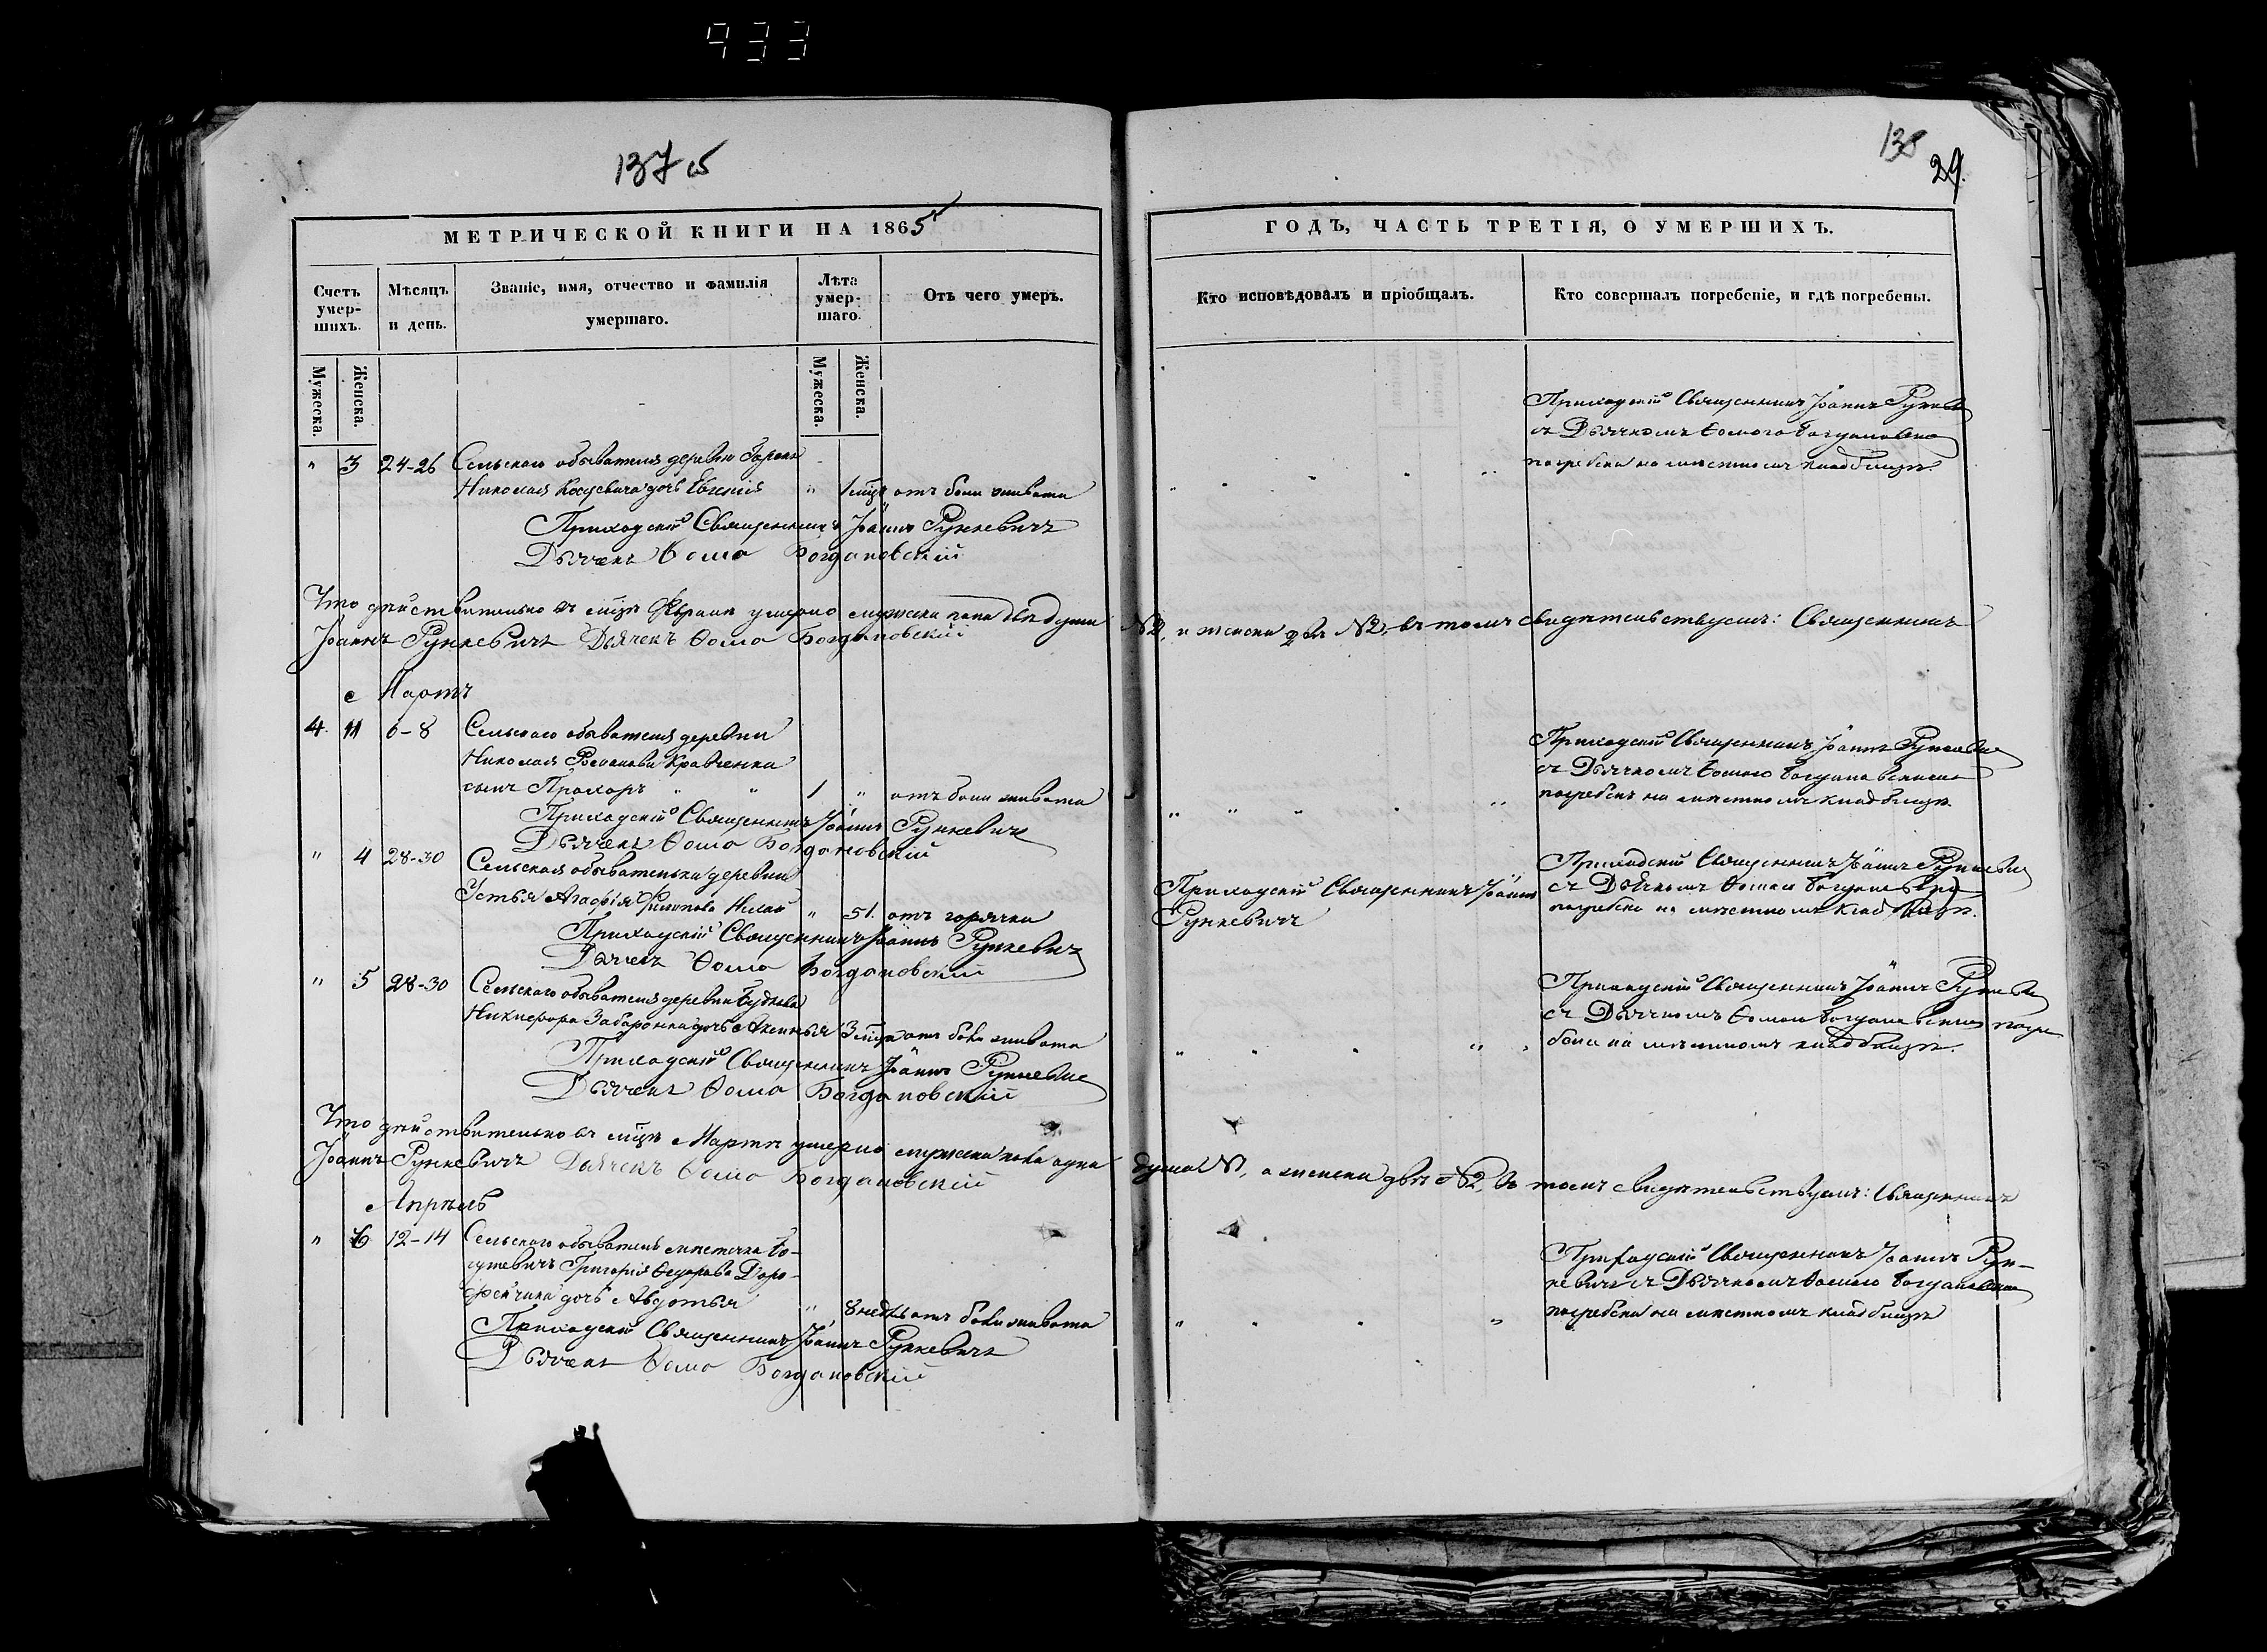 933
137 об
138
29.
МЕТРИЧЕСКОЙ КНИГИ НА 1865
ГОДЪ, ЧАСТЬ ТРЕТІЯ, О УМЕРШИХЪ.
Счетъ умер-шихъ.
Мѣсяцъ и день.
Званіе, имя, отчество и фамилія умершаго.
Лѣта умер-шаго.
Отъ чего умеръ.
Кто исповѣдовалъ и пріобщалъ.
Кто совершалъ погребеніе, и гдѣ погребены.
Мужеска.
Женска.
Мужеска.
Женска.
" 3 24-26 Сельскаго обывателя деревни
Николая дочь Евгенія " 1 мѣц. отъ боли живота
Приходскій Священникъ Іоаннъ Рункевичъ
Дьячекъ Ѳома Богдановскій
Приходскій Священникъ Іоаннъ Рункевичъ
съ Дьячкомъ Ѳомою Богдановскимъ
погребена на мѣстномъ кладбищѣ.
Что дѣйствительно въ мѣцѣ Февралѣ умерло мужеска пола двѣ души № 2, а женска двѣ № 2, въ томъ свидѣтельствуемъ: Священникъ
Іоаннъ Рункевичъ Дьячекъ Ѳома Богдановскій
Мартъ
4. 6-8 Сельскаго обывателя деревни
Николая Романова Кравченка
сынъ Прохоръ " " 1 " отъ боли живота
Приходскій Священникъ Іоаннъ Рункевичъ
Дьячекъ Ѳома Богдановскій
Приходскій Священникъ Іоаннъ Рункевичъ
съ Дьячкомъ Ѳомою Богдановскимъ
погребенъ на мѣстномъ кладбищѣ.
" 4 28-30 Сельская обывателька деревни
Устья Агафія Филипова " 51. отъ горячки
Приходскій Священникъ Іоаннъ Рункевичъ
Дьячекъ Ѳома Богдановскій
Приходскій Священникъ Іоаннъ
Рункевичъ
Приходскій Священникъ Іоаннъ Рункевичъ
съ Дьячкомъ Ѳомою
погребена на мѣстномъ кладбищѣ.
" 5 28-30 Сельскаго обывателя деревни
Никифора дочь Аксинья 3 мѣц. отъ боли живота
Приходскій Священникъ Іоаннъ Рункевичъ
Дьячекъ Ѳома Богдановскій
Приходскій Священникъ Іоаннъ Рункевичъ
съ Дьячкомъ Ѳомою Богдановскимъ погре
бена на мѣстномъ кладбищѣ.
Что дѣйствительно въ мѣцѣ Мартѣ умерло мужеска пола одна душа № 1, а женска двѣ № 2, въ томъ свидѣтельствуемъ: Священникъ
Іоаннъ Рункевичъ Дьячекъ Ѳома Богдановскій
Апрѣль
" 6 12-14 Сельскаго обывателя мѣстечка Бо-
гушевичъ Григорія Ѳедорова Доро-
дочь Авдотья " 8 недѣль отъ боли живота
Приходскій Священникъ Іоаннъ Рункевичъ
Дьячекъ Ѳома Богдановскій
Приходскій Священникъ Іоаннъ Рун-
кевичъ съ Дьячкомъ Ѳомою Богдановскимъ
погребена на мѣстномъ кладбищѣ